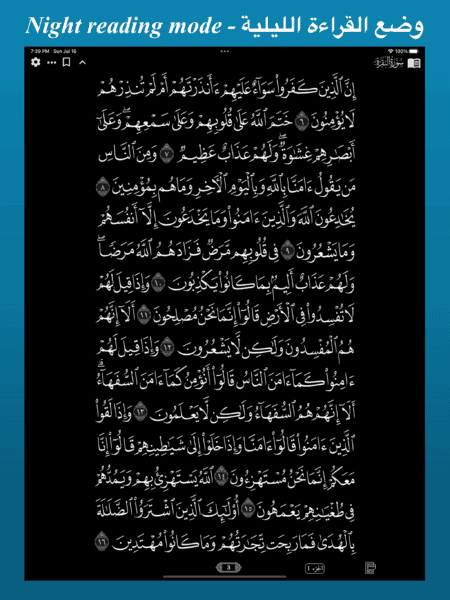 Night reading mode - وضع القراءة الليلية
7:39 PM Sun Jul 16
100%
سورة البقرة
إِنَّ ٱلَّذِينَ كَفَرُوا۟ سَوَآءٌ عَلَيْهِمْ ءَأَنذَرْتَهُمْ أَمْ لَمْ تُنذِرْهُمْ
لَا يُؤْمِنُونَ ٦ خَتَمَ ٱللَّهُ عَلَىٰ قُلُوبِهِمْ وَعَلَىٰ سَمْعِهِمْ ۖ وَعَلَىٰٓ
أَبْصَـٰرِهِمْ غِشَـٰوَةٌ ۖ وَلَهُمْ عَذَابٌ عَظِيمٌ ٧ وَمِنَ ٱلنَّاسِ
مَن يَقُولُ ءَامَنَّا بِٱللَّهِ وَبِٱلْيَوْمِ ٱلْـَٔاخِرِ وَمَا هُم بِمُؤْمِنِينَ ٨
يُخَـٰدِعُونَ ٱللَّهَ وَٱلَّذِينَ ءَامَنُوا۟ وَمَا يَخْدَعُونَ إِلَّآ أَنفُسَهُمْ
وَمَا يَشْعُرُونَ ٩ فِى قُلُوبِهِم مَّرَضٌ فَزَادَهُمُ ٱللَّهُ مَرَضًا ۖ
وَلَهُمْ عَذَابٌ أَلِيمٌۢ بِمَا كَانُوا۟ يَكْذِبُونَ ١٠ وَإِذَا قِيلَ لَهُمْ
لَا تُفْسِدُوا۟ فِى ٱلْأَرْضِ قَالُوٓا۟ إِنَّمَا نَحْنُ مُصْلِحُونَ ١١ أَلَآ إِنَّهُمْ
هُمُ ٱلْمُفْسِدُونَ وَلَـٰكِن لَّا يَشْعُرُونَ ١٢ وَإِذَا قِيلَ لَهُمْ
ءَامِنُوا۟ كَمَآ ءَامَنَ ٱلنَّاسُ قَالُوٓا۟ أَنُؤْمِنُ كَمَآ ءَامَنَ ٱلسُّفَهَآءُ ۗ
أَلَآ إِنَّهُمْ هُمُ ٱلسُّفَهَآءُ وَلَـٰكِن لَّا يَعْلَمُونَ ١٣ وَإِذَا لَقُوا۟
ٱلَّذِينَ ءَامَنُوا۟ قَالُوٓا۟ ءَامَنَّا وَإِذَا خَلَوْا۟ إِلَىٰ شَيَـٰطِينِهِمْ قَالُوٓا۟ إِنَّا
مَعَكُمْ إِنَّمَا نَحْنُ مُسْتَهْزِءُونَ ١٤ ٱللَّهُ يَسْتَهْزِئُ بِهِمْ وَيَمُدُّهُمْ
فِى طُغْيَـٰنِهِمْ يَعْمَهُونَ ١٥ أُو۟لَـٰٓئِكَ ٱلَّذِينَ ٱشْتَرَوُا۟ ٱلضَّلَـٰلَةَ
بِٱلْهُدَىٰ فَمَا رَبِحَت تِّجَـٰرَتُهُمْ وَمَا كَانُوا۟ مُهْتَدِينَ ١٦
3
الجزء ١